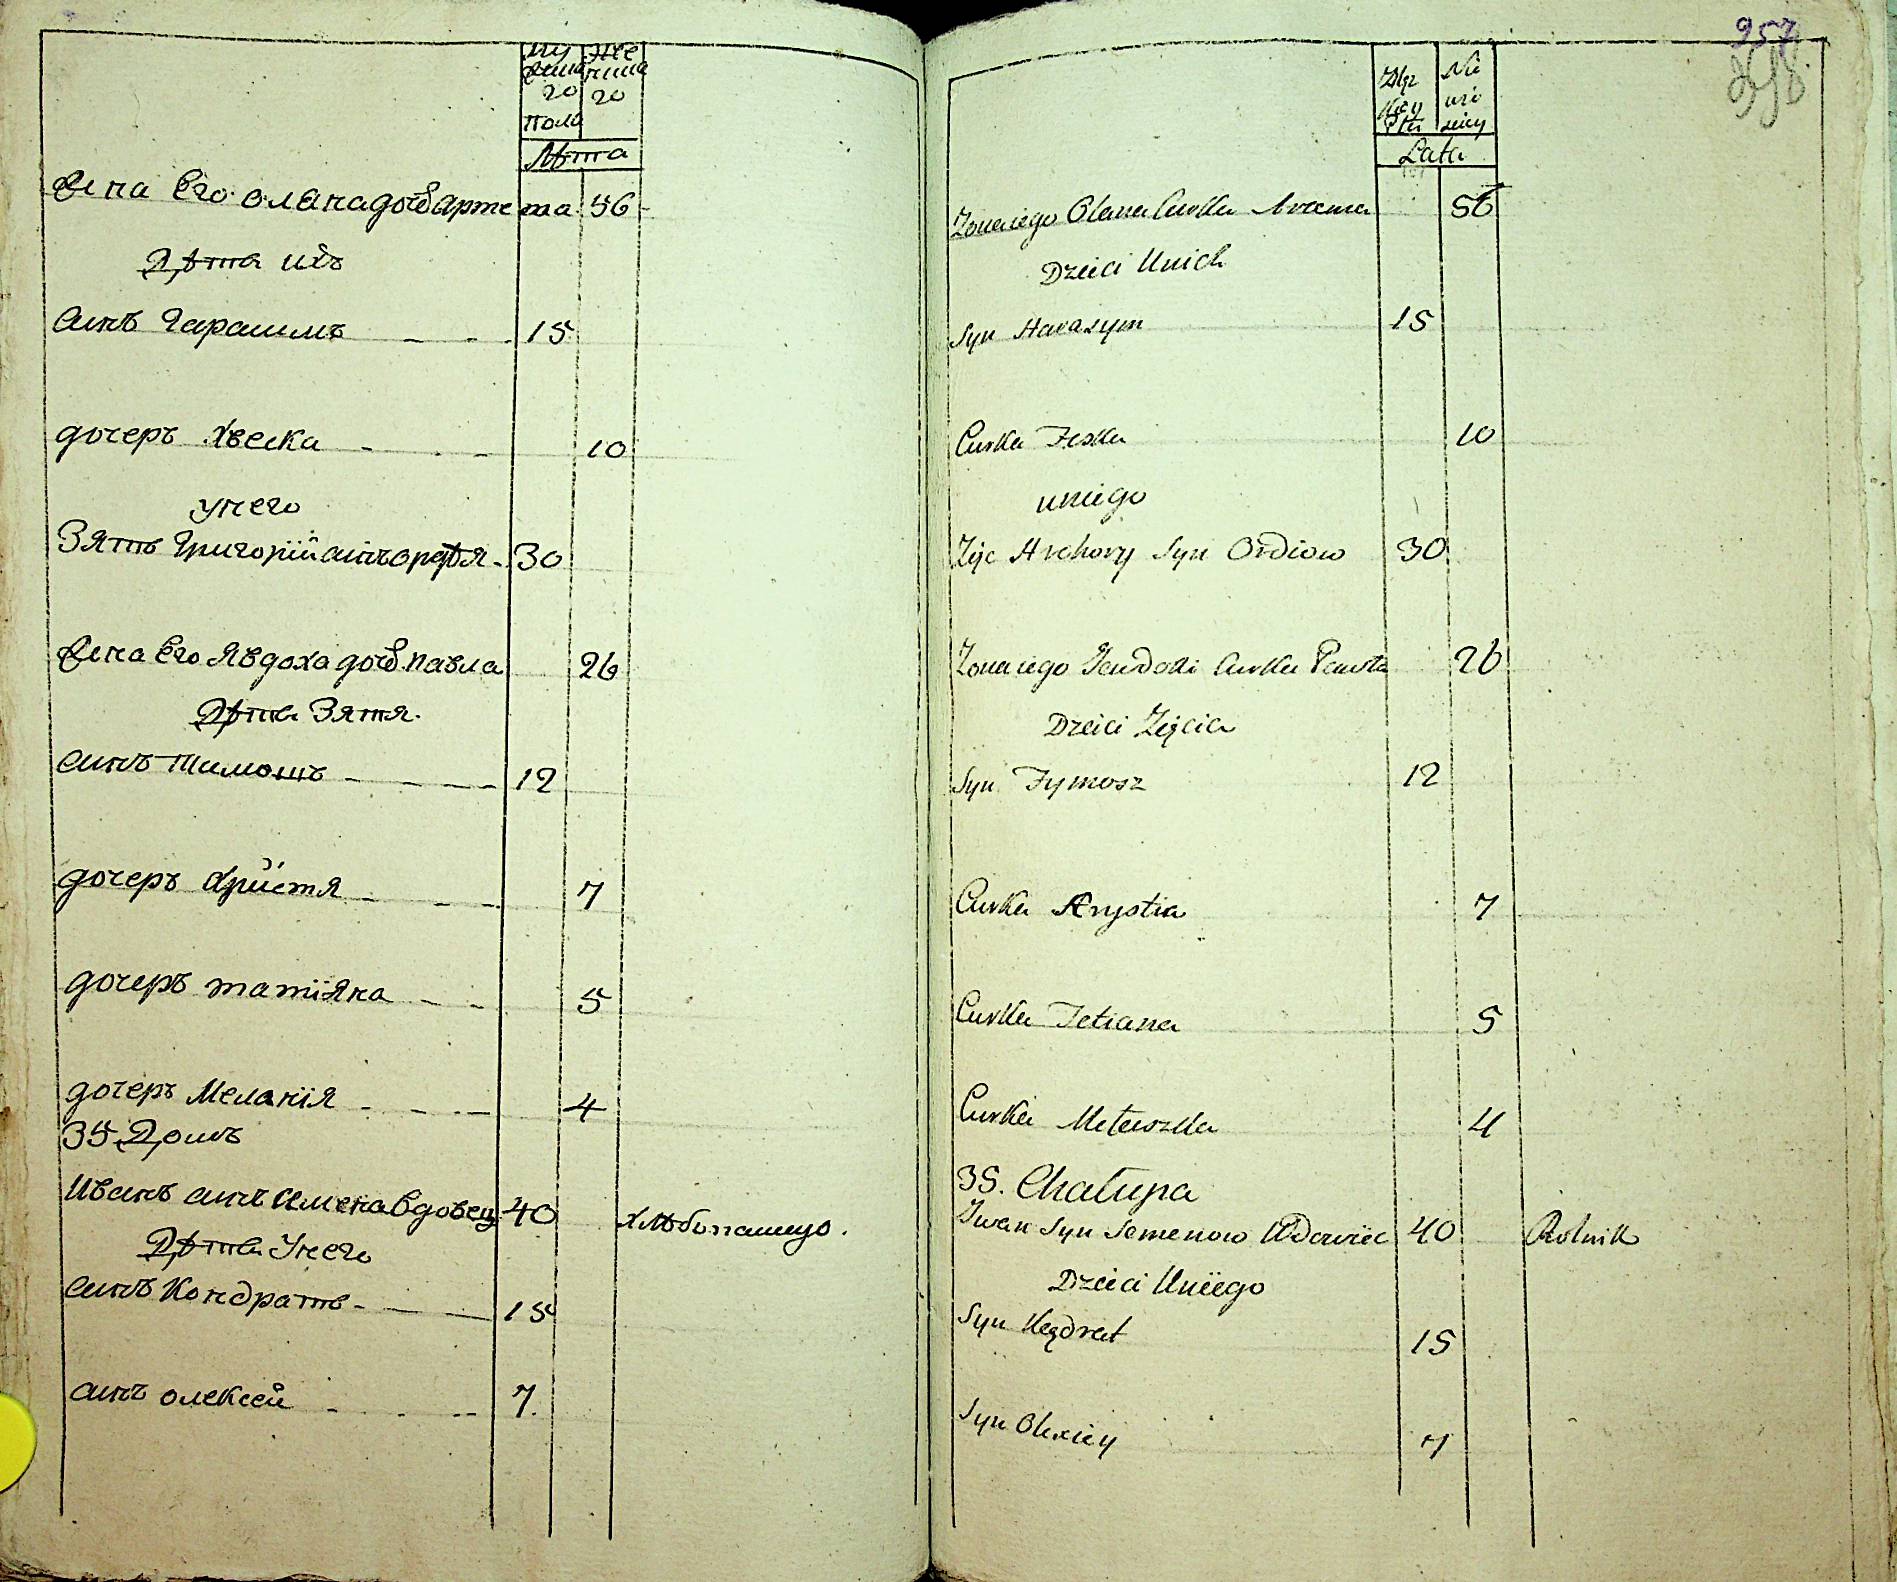 му же
жска нска
го го
пола
Лѣта
Жена Его олена дочь Артема 56
Дѣти ихъ
Синъ Гарасимъ 15
дочеръ Хвеска 10
у него
Зять Григорій синъ ордѣя 30
Жена Его Явдоха дочь Павла 26
Дѣти Зятя.
синъ Тимошъ 12
дочеръ Христя 7
дочеръ татіяна 5
дочеръ Меланія 4
35 Домъ
Иванъ синъ Симена вдовец 40 хлѣбопашцо.
Дѣти У него
синъ Кондратъ 15
синъ олексей 7
957
Męz Nie
kiey wie
Płci sciey
Lata
Zona iego Olena Curka 56
Dzieci U nich
Syn Harasym 15
Curka Feska 10
u niego
Zięc Hrehory Syn Ordiow 30
Zona iego Jeudoki Curka Pawła 26
Dzeici Zięcia
Syn Tymosz 12
Curka Krystia 7
Curka Tetiana 5
Curka Melaszka 4
35. Chałupa
Iwan Syn Semenow Wdowiec 40 Rolnik
Dzeici U niego
Syn Kądrat 15
Syn Olexiey 7